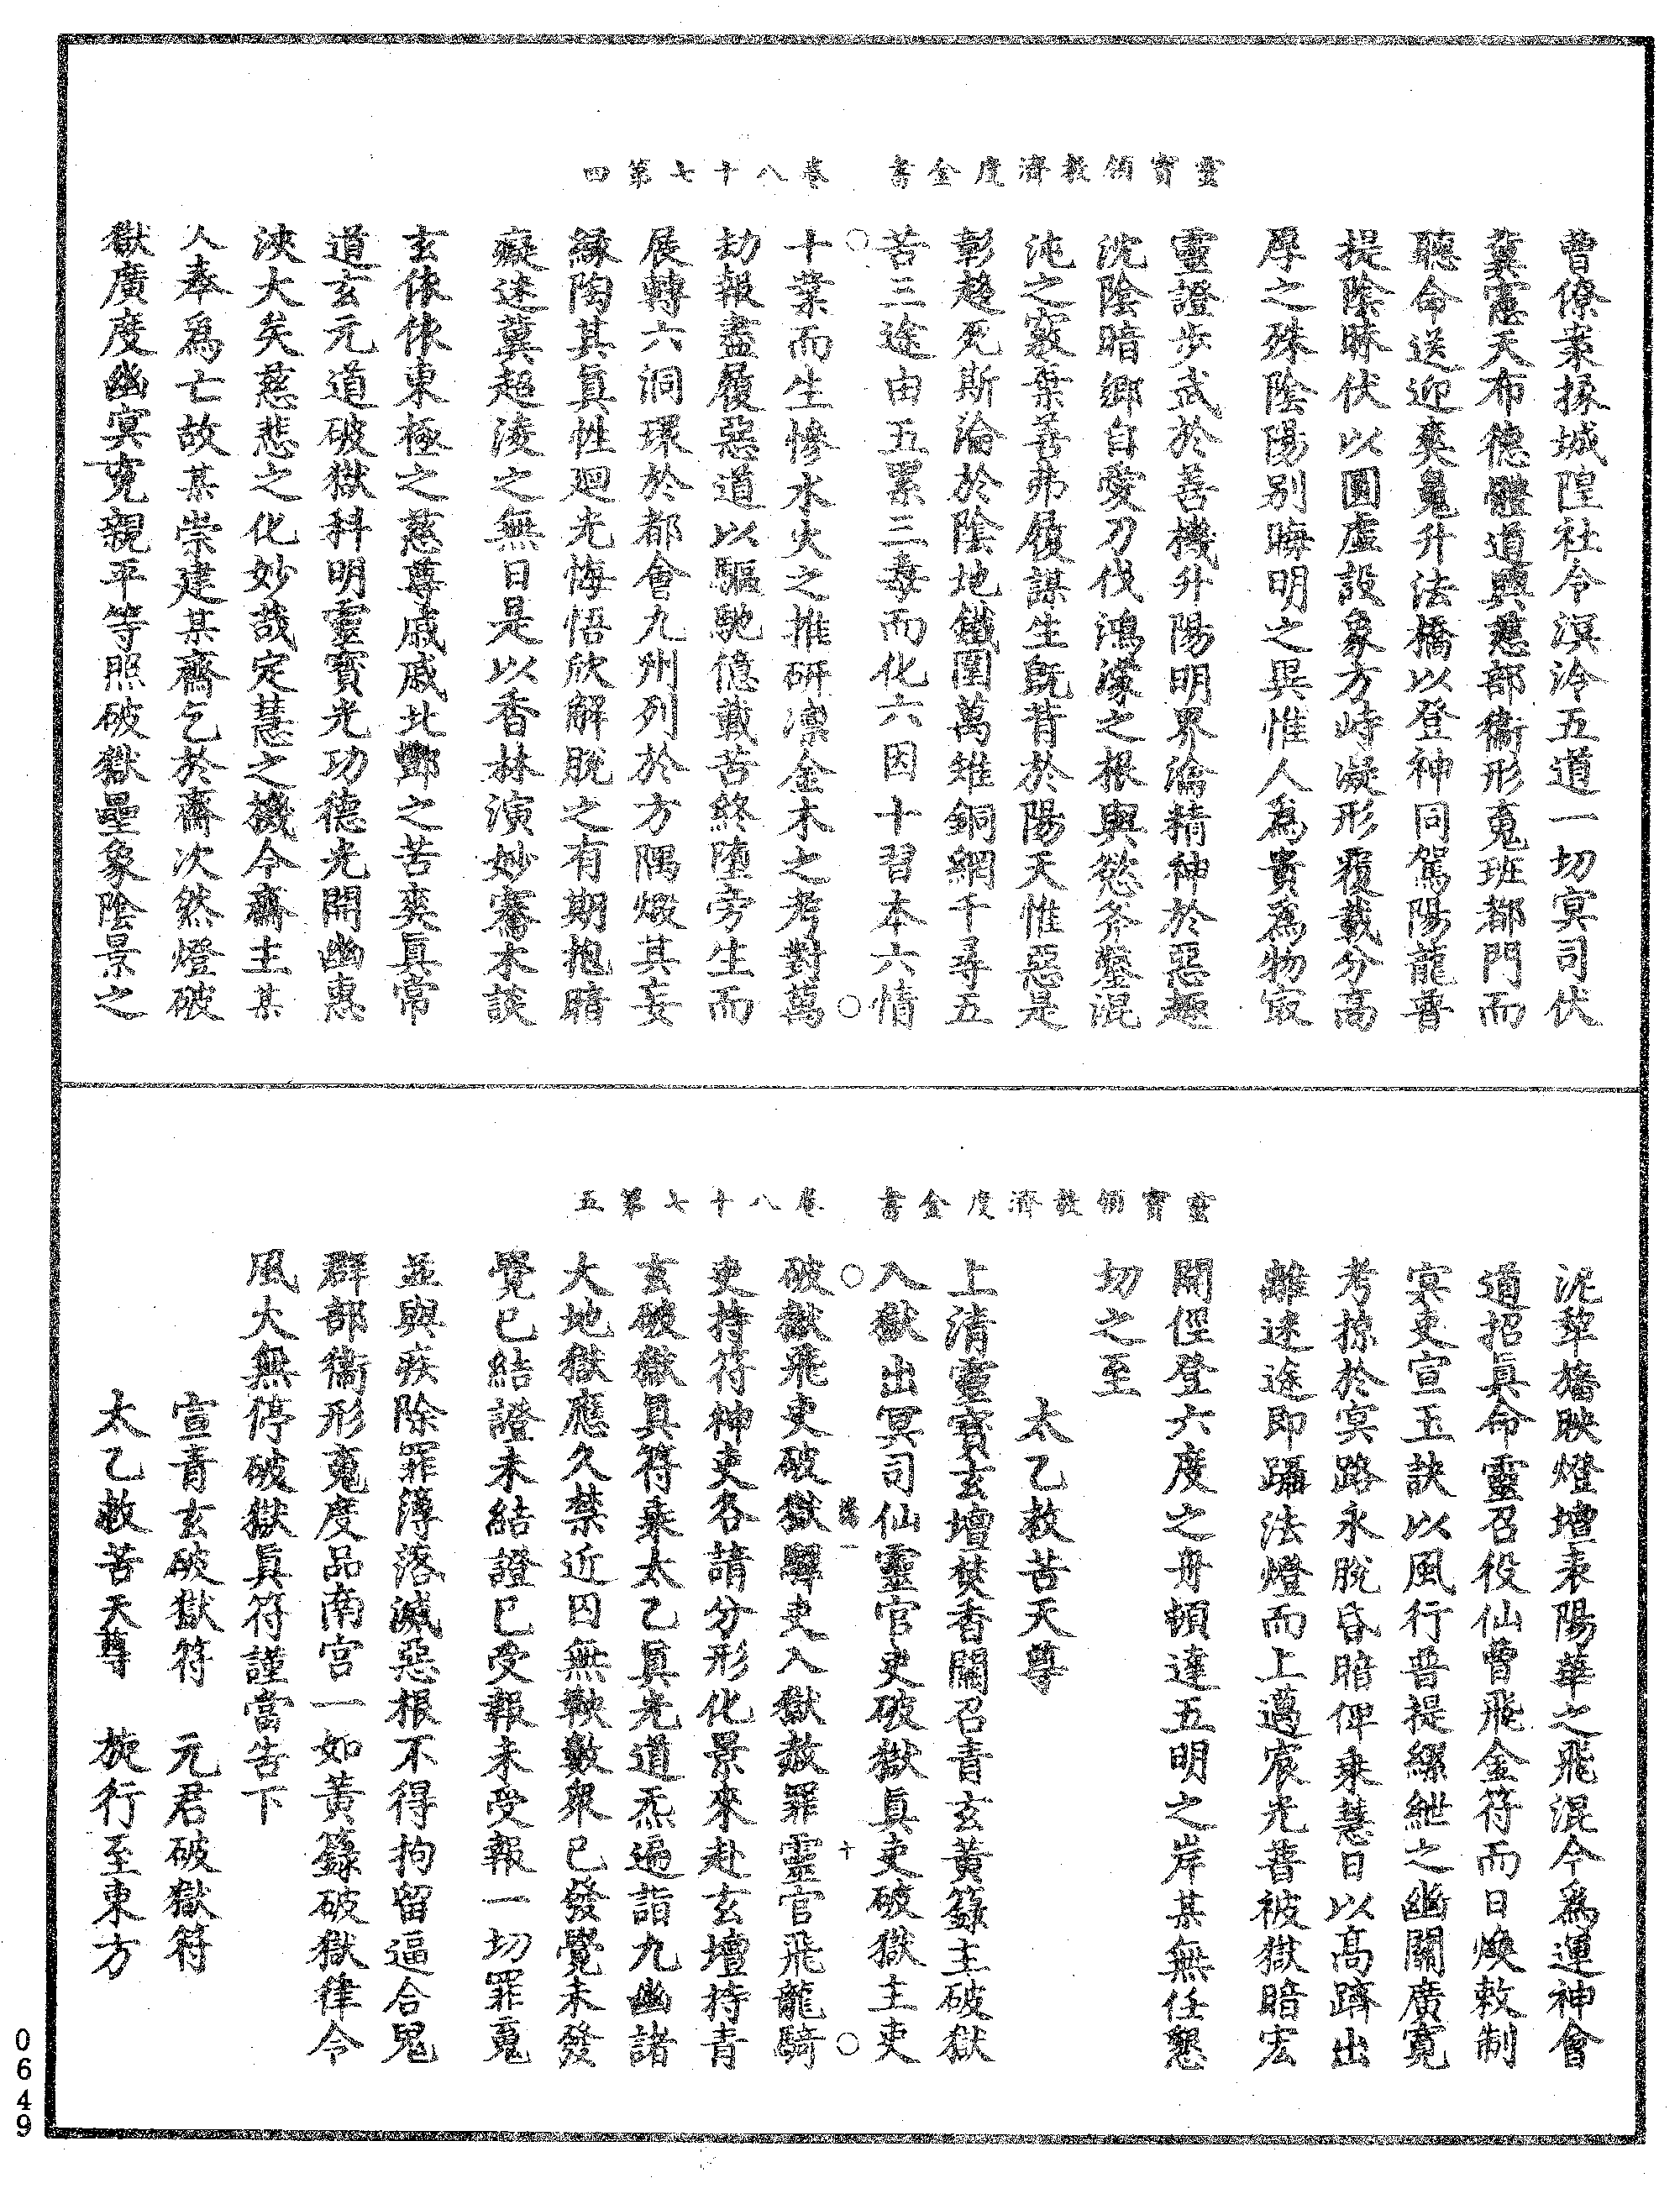 靈寶領教濟度金書　卷八十七第四
曹僚案掾城隍社令溟泠五道一切冥司伏
冀憲天布德體道興慈部衛形䰟班都門而
聽命送迎爽䰟升法橋以登神同駕陽龍普
提陰昧伏以圓虛設象方峙凝形覆載分高
厚之殊陰陽別晦明之異惟人為貴為物㝡
靈證步武於善機升陽明界淪精神於惡趣
沈陰暗鄉自愛刀伐鴻濛之根與慾斧鑿混
沌之竅棄善弗履謀生既背於陽天惟惡是
彰趨死斯淪於陰地鐵圍萬雉銅網千尋五
苦三途由五累三毒而化六因十習本六情
十業而生慘水火之推研凜金木之考對萬
劫報盡履惡道以驅馳億載苦終墮旁生而
展轉六洞環於都會九州列於方隅煅其妄
緣陶其眞性廻光悔悟欣解脫之有期抱暗
癡迷冀超淩之無日是以香林演妙騫木談
玄依依東極之慈尊戚戚北酆之苦爽眞常
道玄元道破獄科明靈寶光功德光開幽惠
浹大矣慈悲之化妙哉定慧之機今齋主某
人奉為亡故某崇建某齋乞於齋次然燈破
獄廣度幽冥寃親平等照破獄壘象陰景之
靈寶領教濟度金書　卷八十七第五
泥犂旛映燈壇表陽華之飛混今為運神會
道招眞命靈召役仙曹飛金符而日煥敕制
冥吏宣玉訣以風行普提縲紲之幽關廣寬
考掠於冥路永脫昏暗俾乘慧日以高躋出
離迷途即躡法燈而上邁宸光普被獄暗宏
開俓登六度之舟頓達五明之岸某無任懇
切之至
太乙救苦天尊
上清靈寶玄壇焚香關召青玄黃籙主破獄
入獄出冥司仙靈官吏破獄眞吏破獄主吏
破獄飛吏破獄驛吏入獄赦罪靈官飛龍騎
吏持符神吏各請分形化景來赴玄壇持青
玄破獄眞符乘太乙眞光道炁遍詣九幽諸
大地獄應久禁近囚無鞅數衆已發覺未發
覺已結證未結證已受報未受報一切罪䰟
並與疾除罪簿落滅惡根不得拘留逼合鬼
群部衛形䰟度品南宮一如黃籙破獄律令
風火無停破獄眞符謹當告下
宣青玄破獄符　元君破獄符
太乙救苦天尊　旋行至東方
十
0649